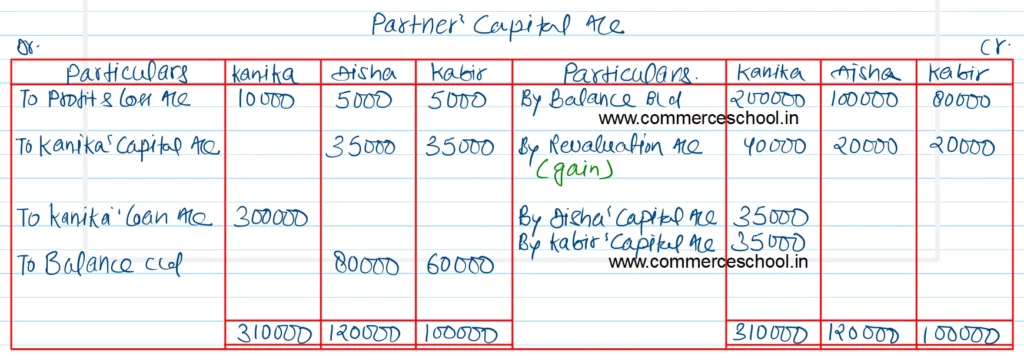 Partner's Capital A/c
Dr. Cr.
Particulars Kanika Aisha Kabir Particulars. Kanika Aisha Kabir
To Profit & Loss A/c 10000 5000 5000 By Balance B/d 200000 100000 80000
www.commerceschool.in
To Kanika's Capital A/c 35000 35000 By Revaluation A/c 40000 20000 20000
(gain)
To Kanika's Loan A/c 300000 By Aisha's Capital A/c 35000
By Kabir's Capital A/c 35000
To Balance c/d 80000 60000 www.commerceschool.in
310000 120000 100000 310000 120000 100000